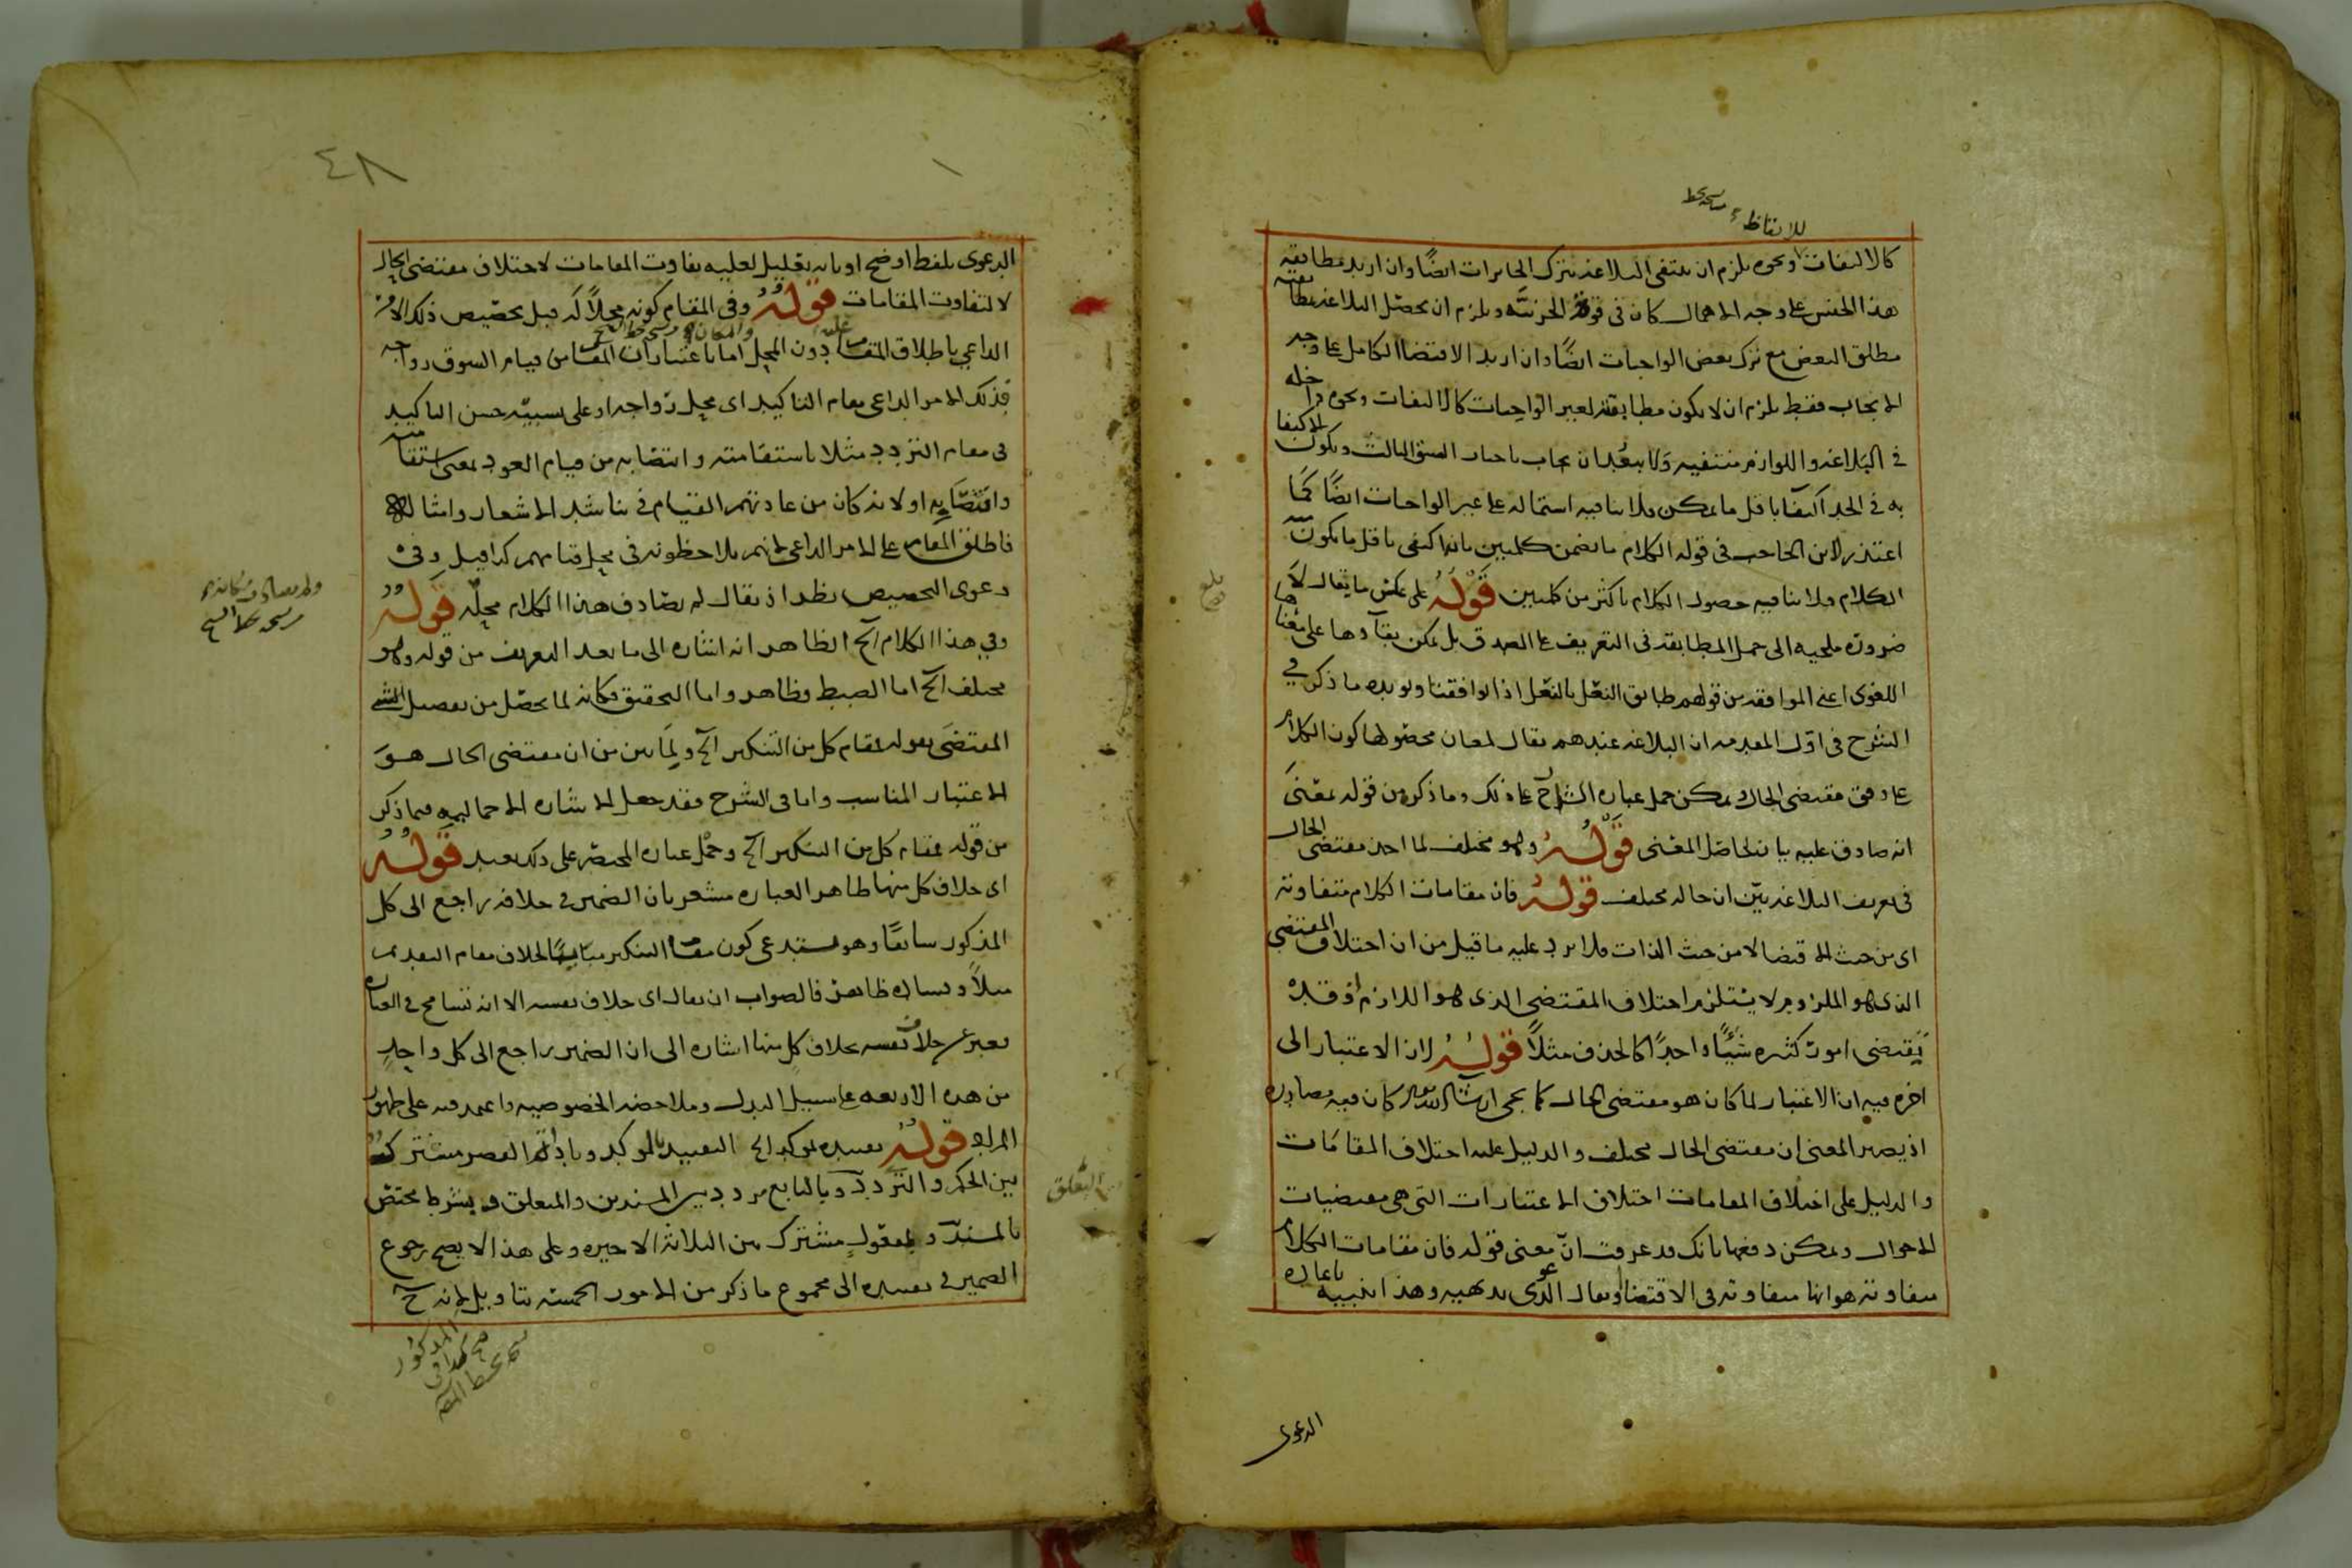 للايقاظ
كالالتفات ونحوه يلزم ان ينتفى البلاغة بترك الجايزات ايضًا وان اريد مطابقة
هذا الجنس على وجه الاهمال كان فى قوة الجزئية ويلزم ان يحصل البلاغة بمطابقة
مطلق البعض مع ترك بعض الواجبات ايضًا وان اريد الاقتضا الكامل على وجه
الايجاب فقط يلزم ان لا يكون مطابقة لغير الواجبات كالالتفات ونحوه داخله
فى البلاغة واللوازم منتفيه ولا يبعد ان يجاب باختيار الشق الثالث ويكون الاكتفا
به فى الحد اكتفا باقل ما يمكن فلا ينافيه اشتماله على غير الواجبات ايضًا كما
اعتذر لابن الحاجب فى قوله الكلام ما تضمن كلمتين بانه اكتفى باقل ما يكون
الكلام فلا ينافيه حصول الكلام باكثر من كلمتين قوله على عكس ما يقال لا
ضرورة ملجيه الى حمل المطابقة فى التعريف على الصدق بل يمكن بقآوها على معناها
اللغوى اعنى الموافقة من قولهم طابق النعل بالنعل اذا توافقتا ويويده ما ذكر فى
الشرح فى اول المقدمه ان البلاغه عندهم يقال لمعان محصولها كون الكلام
على وفق مقتضى الحال ويمكن حمل عبارة الشارح على ذلك وما ذكره من قوله بمعنى
انه صادق عليه بيان لحاصل المعنى قوله وهو مختلف لما اخذ مقتضى الحال
فى تعريف البلاغة بين ان حاله مختلف قوله فان مقامات الكلام متفاوتة
اى من حيث الاقتضا لا من حيث الذات فلا يرد عليه ما قيل من ان اختلاف المقتضى
الذى هو الملزوم لا يستلزم اختلاف المقتضى الذى هو اللازم اذ قد
يقتضى امور كثيره شيئًا واحدًا كالحذف مثلاً قوله لان الاعتبار الى
اخره فيه ان الاعتبار لما كان هو مقتضى الحال كما يجى ان شا الله تعالى كان فيه مصادره
اذ يصير المعنى ان مقتضى الحال مختلف والدليل عليه اختلاف المقامات
والدليل على اختلاف المقامات اختلاف الاعتبارات التى هى مقتضيات
الاحوال ويمكن دفعها بانك قد عرفت ان معنى قوله فان مقامات الكلام
متفاوتة هو انها متفاوتة فى الاقتضا ويقال الدعوى بديهيه وهذا تنبيه باعاده
الدعوى
٤٨
الدعوى بلفظ اوضح او بانه تعليل لعلية تفاوت المقامات لاختلاف مقتضى الحال
لا لتفاوت المقامات قوله وفى المقام كونه محلاً له قيل تخصيص ذلك الامر
الداعي باطلاق المقام عليه دون المحل اما باعتبار ان المقام من قيام السوق رواجه
فذلك الامر الداعى مقام التاكيد اى محل رواجه او على سببيه حسن التاكيد
فى مقام التردد مثلا باستقامته وانتصابه من قيام العود بمعنى استقامته
وانتصابه او لانه كان من عادتهم القيام فى تناشد الاشعار وامثاله
فاطلق المقام على الامر الداعى لانهم يلاحظونه فى محل قيامهم كذا قيل وفى
دعوى التخصيص نظر اذ يقال لم يصادف هذا الكلام محله قوله
وفي هذا الكلام آلخ الظاهر انه اشاره الى ما بعد التعريف من قوله وهو
مختلف آلخ اما الضبط فظاهر واما التحقيق فكانه لما يحصل من تفصيل الشى
المقتضى بقوله لمقام كل من التنكير آلخ ولما بين من ان مقتضى الحال هو
الاعتبار المناسب واما فى الشرح فقد جعل الاشاره الاجماليه فيما ذكر
من قوله لمقام كل من التنكير آلخ وحمل عبارة المختصر على ذلك بعيد قوله
اى خلاف كل منها ظاهر العبارة مشعر بان الضمير فى خلافه راجع الى كل
المذكور سابقًا وهو يستدعى كون مقام التنكير مباينًا لخلاف مقام التقديم
مثلاً وفساده ظاهر فالصواب ان يقال اى خلاف نفسه الا انه تسامح فى العبارة
فعبر عن خلاف نفسه بخلاف كل منها اشاره الى ان الضمير راجع الى كل واحد
من هذه الاربعه على سبيل البدل وملاحضة الخصوصيه واعتمد فيه على ظهور
المراد قوله تقييده بموكد الخ التقييد بالموكد وباداة القصر مشترك
بين الحكم والتردد وبالتابع مردد بين المسندين والمتعلق وبشرط مختص
بالمسند وبمفعول مشترك بين الثلاثة الاخيره وعلى هذا لا يصح رجوع
الضمير فى تقييده الى مجموع ما ذكر من الامور الخمسه بتاويل لانه ح
المذكور